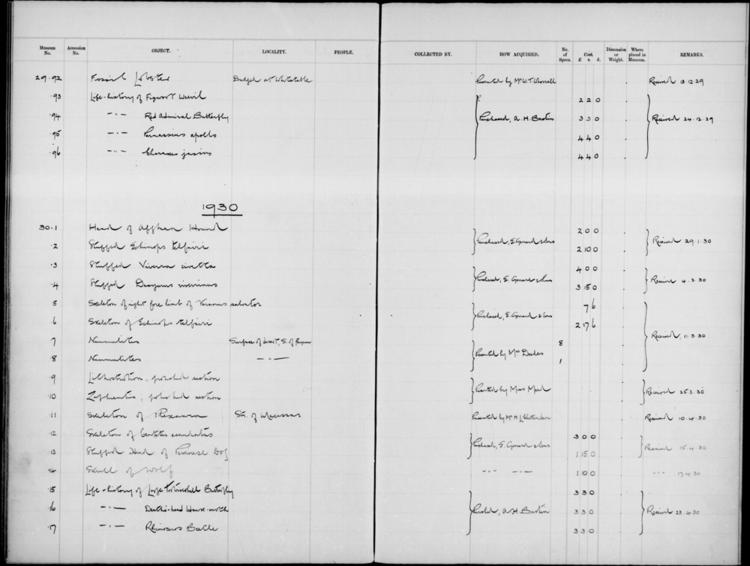 Museum No. Accession No. OBJECT. LOCALITY. PEOPLE. COLLECTED BY. HOW ACQUIRED. No. of Specs. Cost. £ s d. Dimension or Weight. Where placed in Museum. REMARKS.
29.92 Fossil Lobster Dredged at Whitstable Presented by Received 12.29
.93 Life-history of Weevil 2 2 0
.94 —"— Red Admiral Butterfly Purchased, A.H. 3 3 0 Received 24.12.29
.95 —"— 4 4 0
.96 —"— 4 4 0
1930
30.1 Head of Afghan Hound 2 0 0
.2 Stuffed Purchased, E. Gerrard & Sons 2 10 0 Received 29.1.30
.3 Stuffed Viverra civetta 4 0 0
.4 Stuffed Dasyurus viverrinus Purchased, E. Gerrard & Sons 3 15 0 Received 4.3.30
5 Skeleton of right fore limb of 7 6
6 Skeleton of Purchased, E. Gerrard & Sons 2 17 6
7 Nummulites Surface of desert, S. of 8 Received 11.3.30
8 Nummulites —"— Presented by 1
9 Lithostrotion, polished section
10 Zaphrentis, polished section Presented by Miss Received 25.3.30
11 Skeleton of Str. of Macassar Presented by Mr. Received 10.4.30
12 Skeleton of 3 0 0
13 Stuffed Head of Dog Purchased, E. Gerrard & Sons 1 15 0 Received 15.4.30
14 Skull of Wolf —"— —"— 1 0 0 —"— 17.4.30
15 Life-history of Large Tortoiseshell Butterfly 3 3 0
16 —"— Deaths-head Hawk-moth Purchased, A.H. 3 3 0 Received 23.4.30
17 —"— Beetle 3 3 0